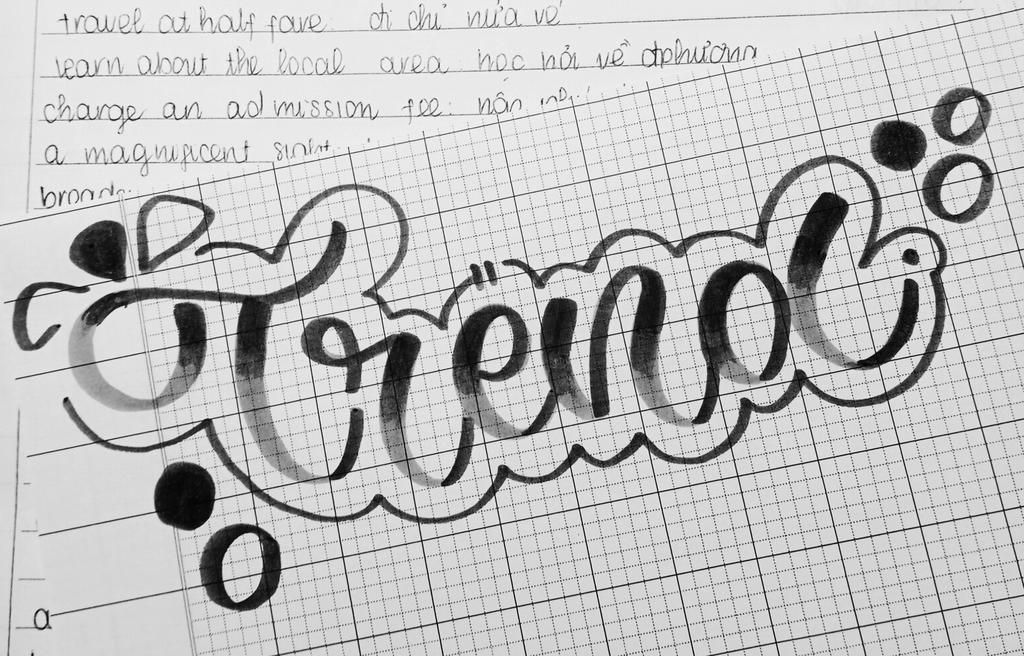 travel at half fare: đi chỉ nửa vé
learn about the local area: học hỏi về đphương
charge an admission fee:
a magnificent sight
Trend
a